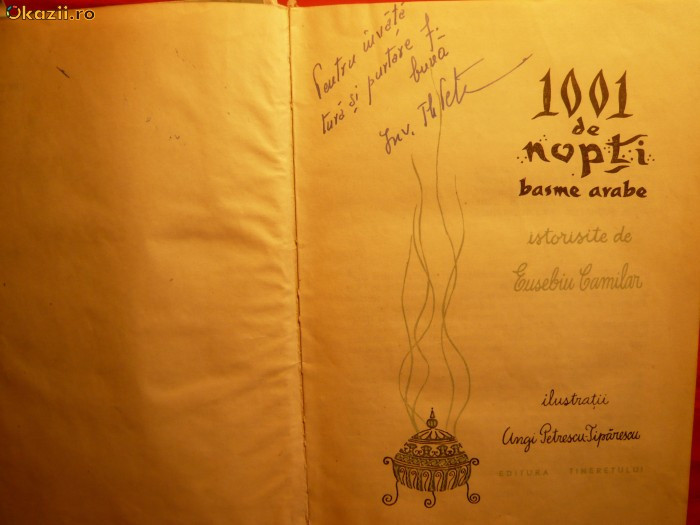 Okazii.ro
Pentru învăță
tură și purtare f.
bună
Înv.
1001
de
nopți
basme arabe
istorisite de
Eusebiu Camilar
ilustrații
Angi Petrescu-Tipărescu
EDITURA TINERETULUI